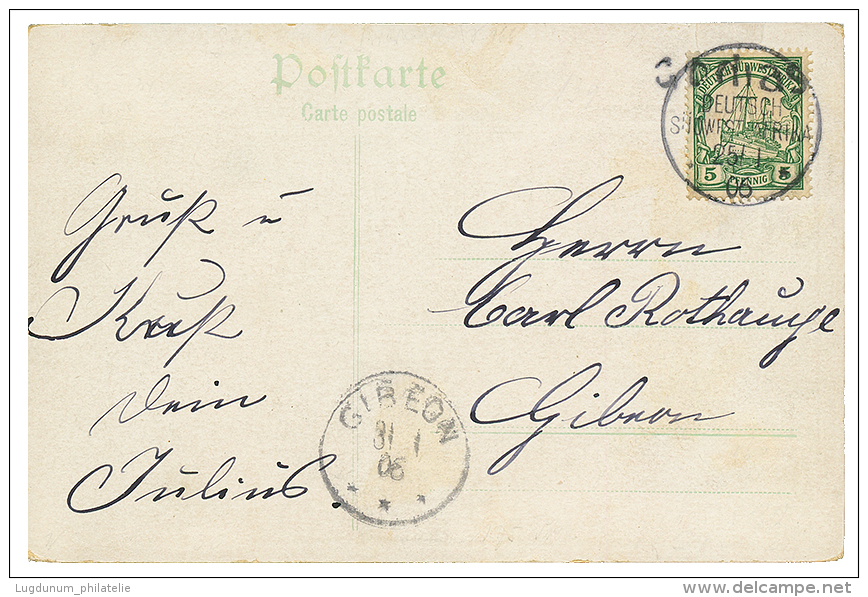 Postkarte
Carte postale
DEUTSCH-SÜDWESTAFRIKA
DEUTSCH
SÜDWESTAFRIKA
25 1
06
5 PFENNIG 5
Gruß u
Kuß
Dein
Julius.
Herrn
Carl Rothauge
Gibeon
GIBEON
31 1
06
Lugdunum_philatelie
delcampe.net